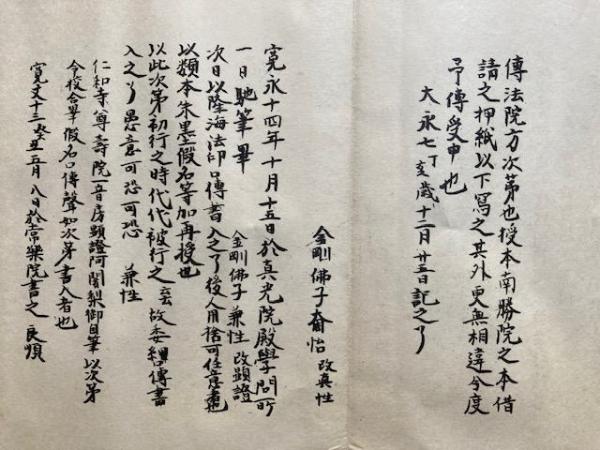 傳法院方次第也授本南勝院之本借
請之押紙以下寫之其外更無相違今度
予傳受申也
大永七丁亥歳十二月廿五日記之了
金剛佛子奝怡改真性
寛永十四年十月十五日於真光院殿學問所
一日馳筆畢
金剛佛子兼性改顕證
次日以隆海法印口傳書入之了後人用捨可任意耳
以類本朱墨假名等加再授也
以此次第初行之時代代被行之 故委細傳書
入之了愚意可恐可恐 兼性
仁和寺尊壽院一音房顕證阿闍梨御自筆以次第
令校合畢假名口傳聲如次第書入者也
寛文十三癸丑五月八日於常樂院書之 良順